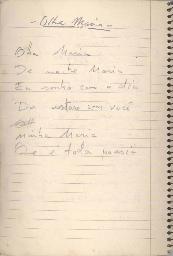 - Olha Maria -
Olha Maria
De noite Maria
Eu sonho com o dia
De estar com você
Minha Maria
De é toda poesia